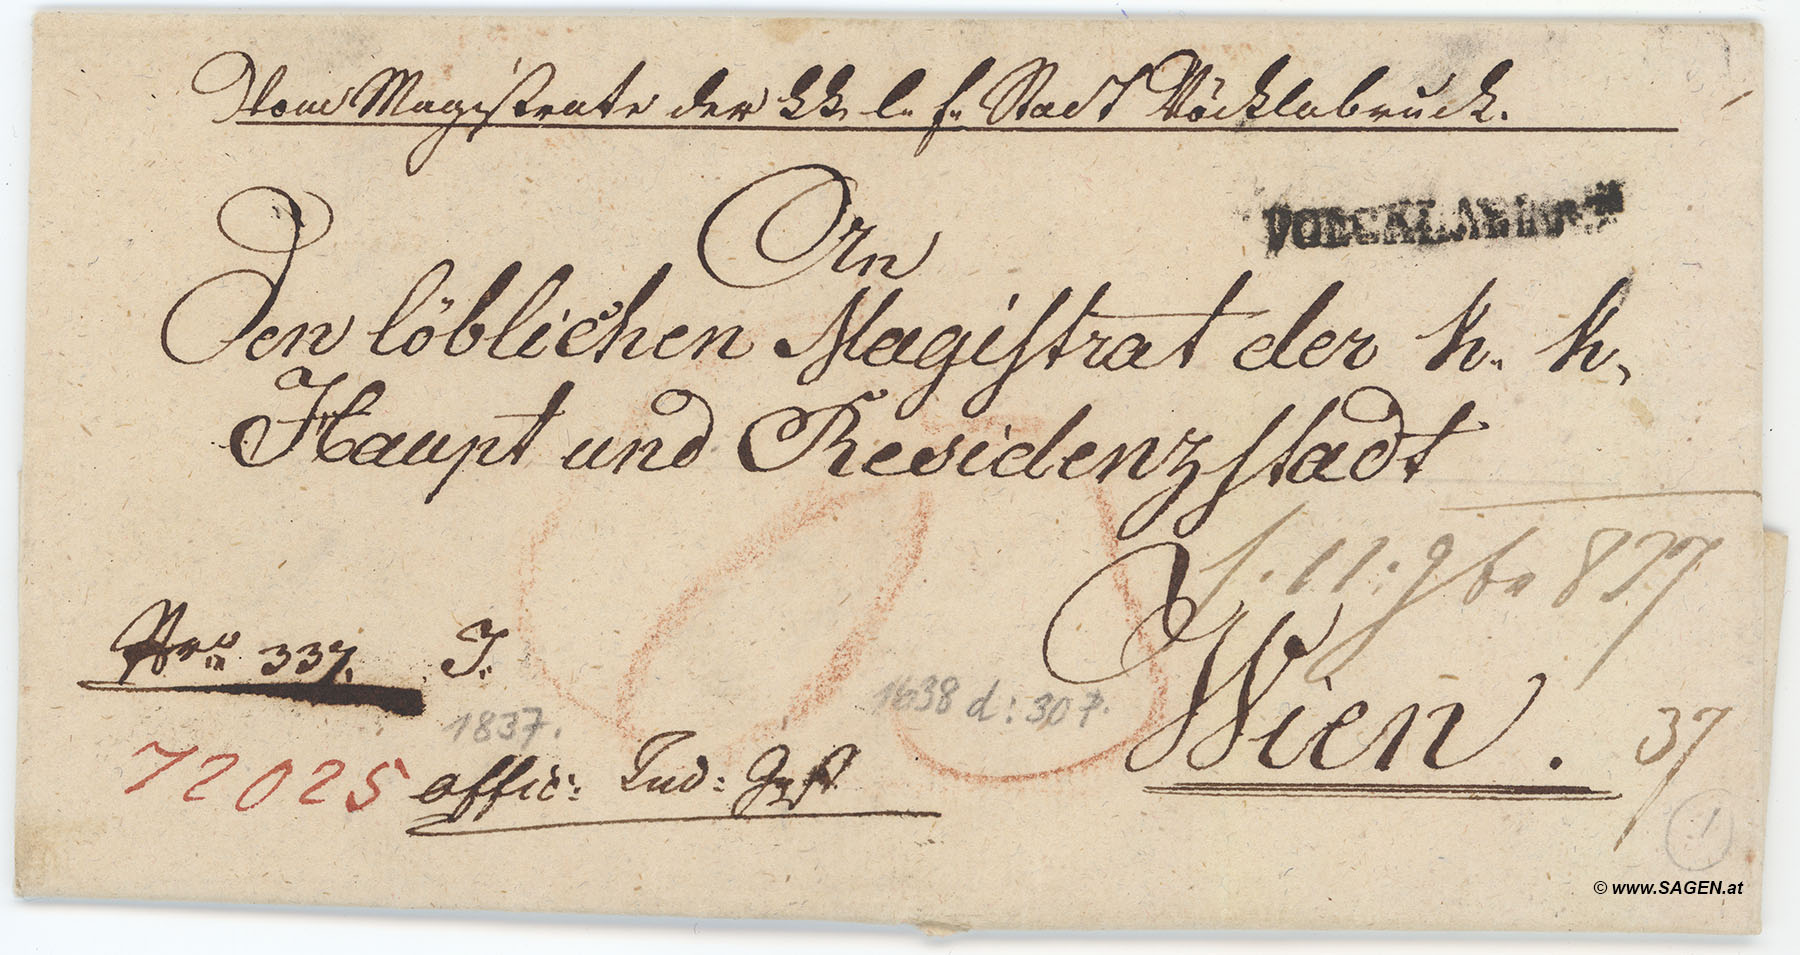 Vom Magistrate der kk. l. f. Stadt Vöcklabruck.
An
Den löblichen Magistrat der k. k.
Haupt und Residenzstadt
Wien.
37
Nro 337. J.
1837.
1638 d: 307.
72025
offic:
1
© www.SAGEN.at